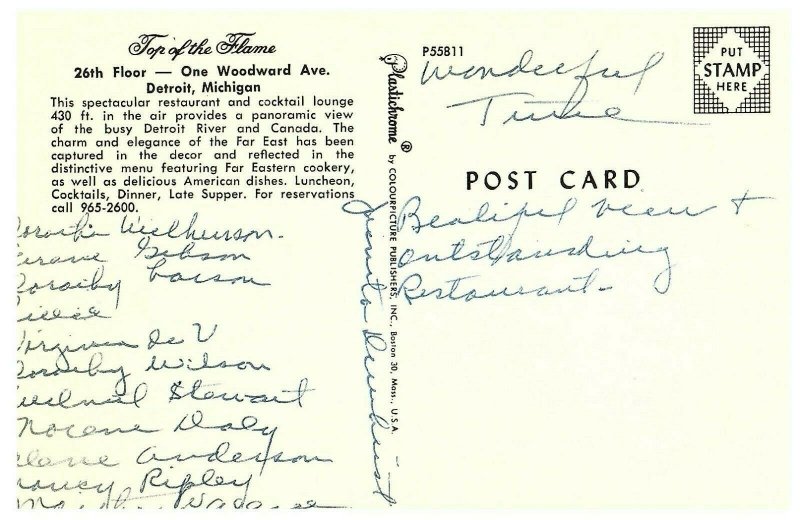 Top of the Flame
26th Floor — One Woodward Ave.
Detroit, Michigan
This spectacular restaurant and cocktail lounge
430 ft. in the air provides a panoramic view
of the busy Detroit River and Canada. The
charm and elegance of the Far East has been
captured in the decor and reflected in the
distinctive menu featuring Far Eastern cookery,
as well as delicious American dishes. Luncheon,
Cocktails, Dinner, Late Supper. For reservations
call 965-2600.
Gibson
Virginia de V
Wilson
Stewart
Norene Daly
Anderson
Nancy Ripley
Plastichrome ® by COLOURPICTURE PUBLISHERS, INC., Boston 30, Mass., U.S.A.
P55811
Wonderful
Time
PUT
STAMP
HERE
POST CARD
Beatiful view +
outstanding
Restaurant-